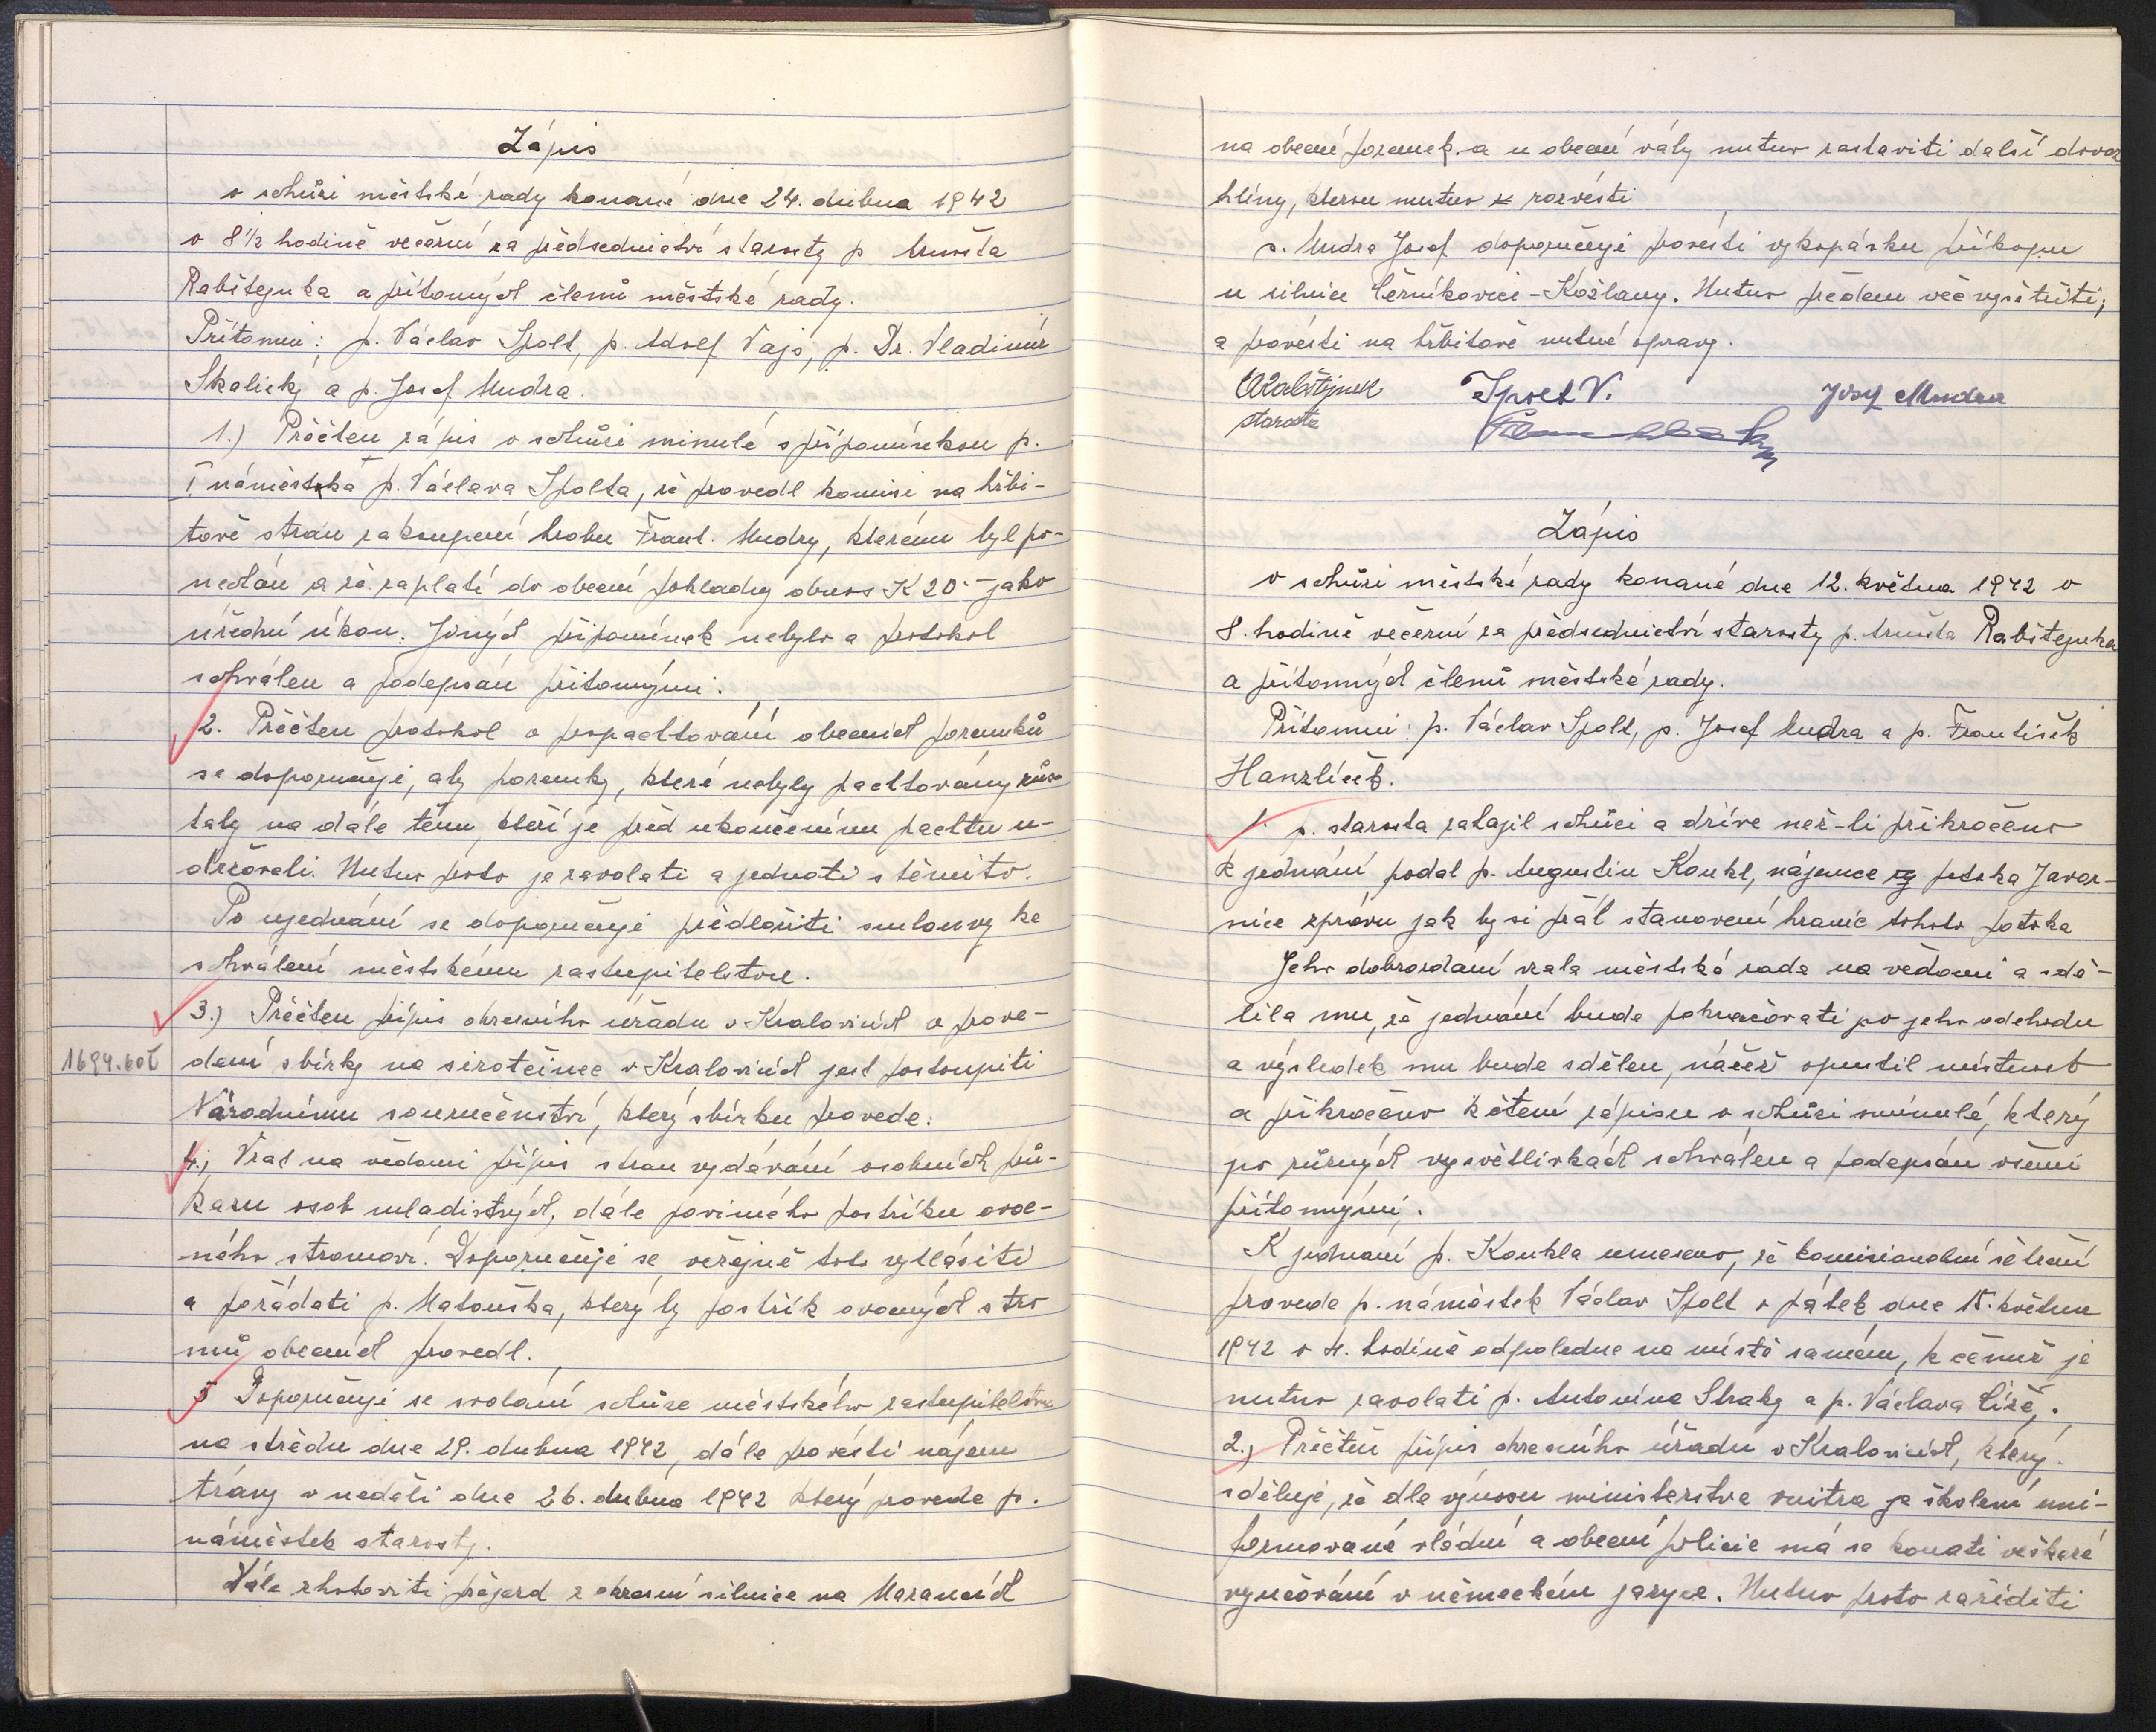 Zápis
o schůzi městské rady konané dne 24. dubna 1942
o 8 1/2 hodině večerní za předsednictví starosty p. Arnošta
Rabštejnka a přítomných členů městské rady.
Přítomni: p. Václav Spolt, p. Adolf Vajs, p. Dr. Vladimír
Skalický a p. Josef Mudra.
1.) Přečten zápis o schůzi minulé s připomínkou p.
I náměstka p. Václava Spolta, že provedl komisi na hřbi-
tově stran zakoupení hrobu Frant. Mudry, kterému byl po-
nechán a že zaplatí do obecní pokladny obnos K 20.- jako
úřední úkon. Jiných připomínek nebylo a protokol
schválen a podepsán přítomnými.
2. Přečten protokol o propachtování obecních pozemků
se doporučuje, aby pozemky, které nebyly pachtovány zůs-
taly na dále těm, kteří je před ukončením pachtu u-
držovali. Nutno proto je zavolati a jednati s těmito.
Po ujednání se doporučuje předložiti smlouvy ke
schválení městskému zastupitelstvu.
3.) Přečten přípis okresního úřadu v Kralovicích o prove-
1694.60K dení sbírky na sirotčinec v Kralovicích jest postoupiti
Národnímu souručenství, který sbírku provede.
4.) Vzat na vědomí přípis stran vydávání osobních prů-
kazu osob mladistvých, dále povinného postřiku ovoc-
ného stromoví. Doporučuje se veřejně toto vyhlásiti
a požádati p. Matouška, který by postřik ovocných stro
mů obecních provedl.
5 Doporučuje se svolání schůze městského zastupitelstva
na středu dne 29. dubna 1942, dále provésti nájem
trávy v neděli dne 26. dubna 1942 který provede p.
náměstek starosty.
Dále zhotoviti přejezd z okresní silnice na Mazancích
na obecní pozemek. a u obecní váhy nutno zastaviti další dovoz
hlíny, kterou nutno rozvésti
p. Mudra Josef doporučuje provésti vykopávku příkopu
u silnice Černíkovice-Kožlany. Nutno předem věc vyšetřiti,
a provésti na hřbitově nutné opravy.
ARabštejnek Spolt V. Josef Mudra
starosta
Zápis
o schůzi městské rady konané dne 12. května 1942 o
8. hodině večerní za předsednictví starosty p. Arnošta Rabštejnka
a přítomných členů městské rady.
Přítomni: p. Václav Spolt, p. Josef Mudra a p. František
Hanzlíček.
1. p. starosta zahájil schůzi a dříve než-li přikročeno
k jednání, podal p. Augustin Koukl, nájemce potoka Javor-
nice zprávu jak by si přál stanovení hranic tohoto potoka
Jeho dobrozdaní vzala městská rada na vědomí a sdě-
lila mu, že jednání bude pokračovati po jeho odchodu
a výsledek mu bude sdělen, načež opustil místnost
a přikročeno k čtení zápisu o schůzi minulé, který
po různých vysvětlivkách schválen a podepsán všemi
přítomnými.
K jednání p. Koukla usneseno, že komisionelní šetření
provede p. náměstek Václav Spolt v pátek dne 15. května
1942 o 4. hodině odpoledne na místě samém, k čemuž je
nutno zavolati p. Antonína Straky a p. Václava Číže.
2.) Přečten přípis okresního úřadu v Kralovicích, který
sděluje, že dle výnosu ministerstva vnitra je školení uni-
formované vládní a obecní policie má se konati veškeré
vyučování v německém jazyce. Nutno proto zaříditi